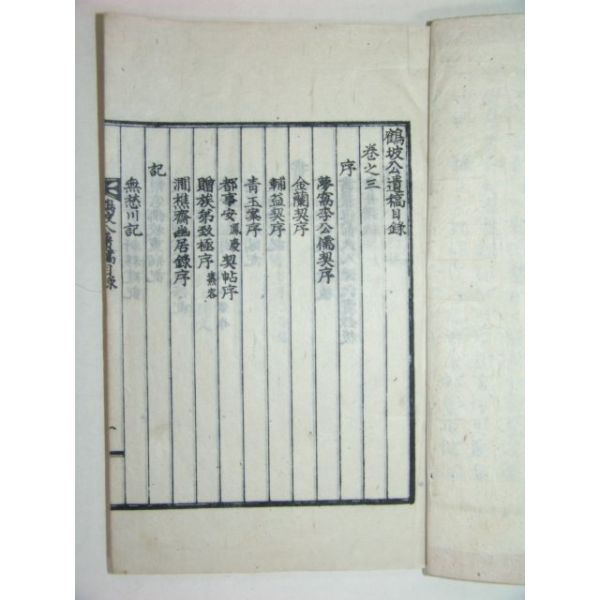 鶴坡公遺稿目錄
卷之三
序
夢窩李公儒契序
金蘭契序
輔益契序
青玉案序
都事安鳳慶契帖序
贈族弟致極序
澗樵齋幽居錄序
記
無愁川記
鶴坡公遺稿目錄
一